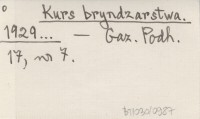 Kurs bryndzarstwa.
1929... — Gaz. Podh.
17, nr 7.